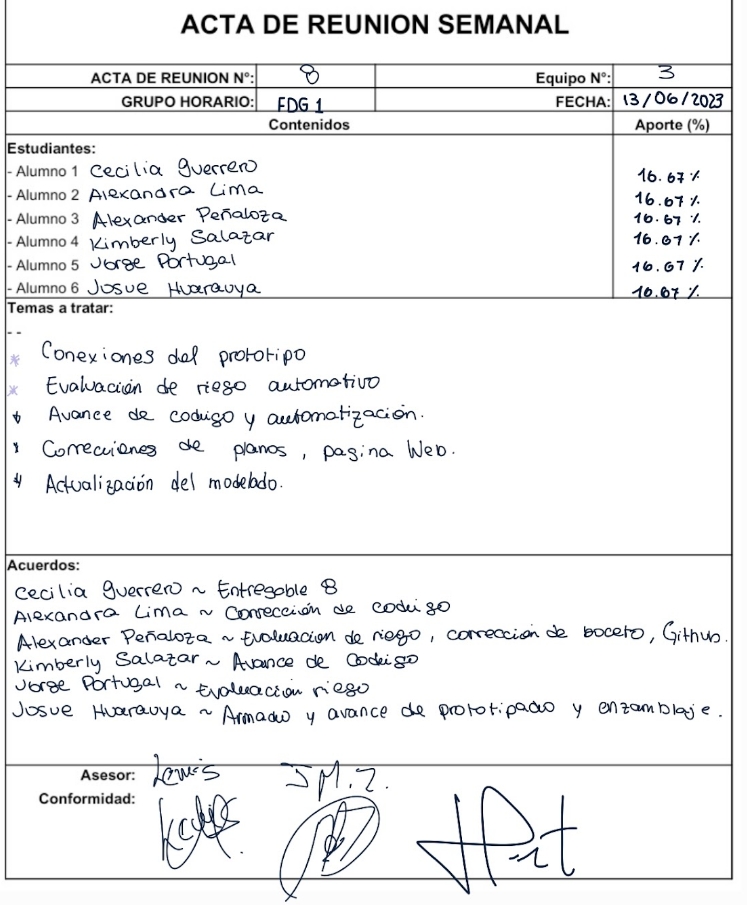 ACTA DE REUNION SEMANAL
ACTA DE REUNION N°: 8 Equipo N°: 3
GRUPO HORARIO: FDG 1 FECHA: 13/06/2023
Contenidos Aporte (%)
Estudiantes:
- Alumno 1 Cecilia Guerrero 16.67 %
- Alumno 2 Alexandra Lima 16.67 %
- Alumno 3 Alexander Peñaloza 16.67 %
- Alumno 4 Kimberly Salazar 16.67 %
- Alumno 5 Jorge Portugal 16.67 %
- Alumno 6 Josue Huarauya 16.67 %
Temas a tratar:
--
* Conexiones del prototipo
* Evaluación de riego automativo
* Avance de codigo y automatización.
* Correciones de planos, pagina Web.
* Actualización del modelado.
Acuerdos:
Cecilia Guerrero ~ Entregable 8
Alexandra Lima ~ Corrección de codigo
Alexander Peñaloza ~ Evaluacion de riego, corrección de boceto, Github.
Kimberly Salazar ~ Avance de Codigo
Jorge Portugal ~ Evaluación riego
Josue Huarauya ~ Armado y avance de prototipado y enzamblaje.
Asesor: Lewis J.M.Z.
Conformidad: